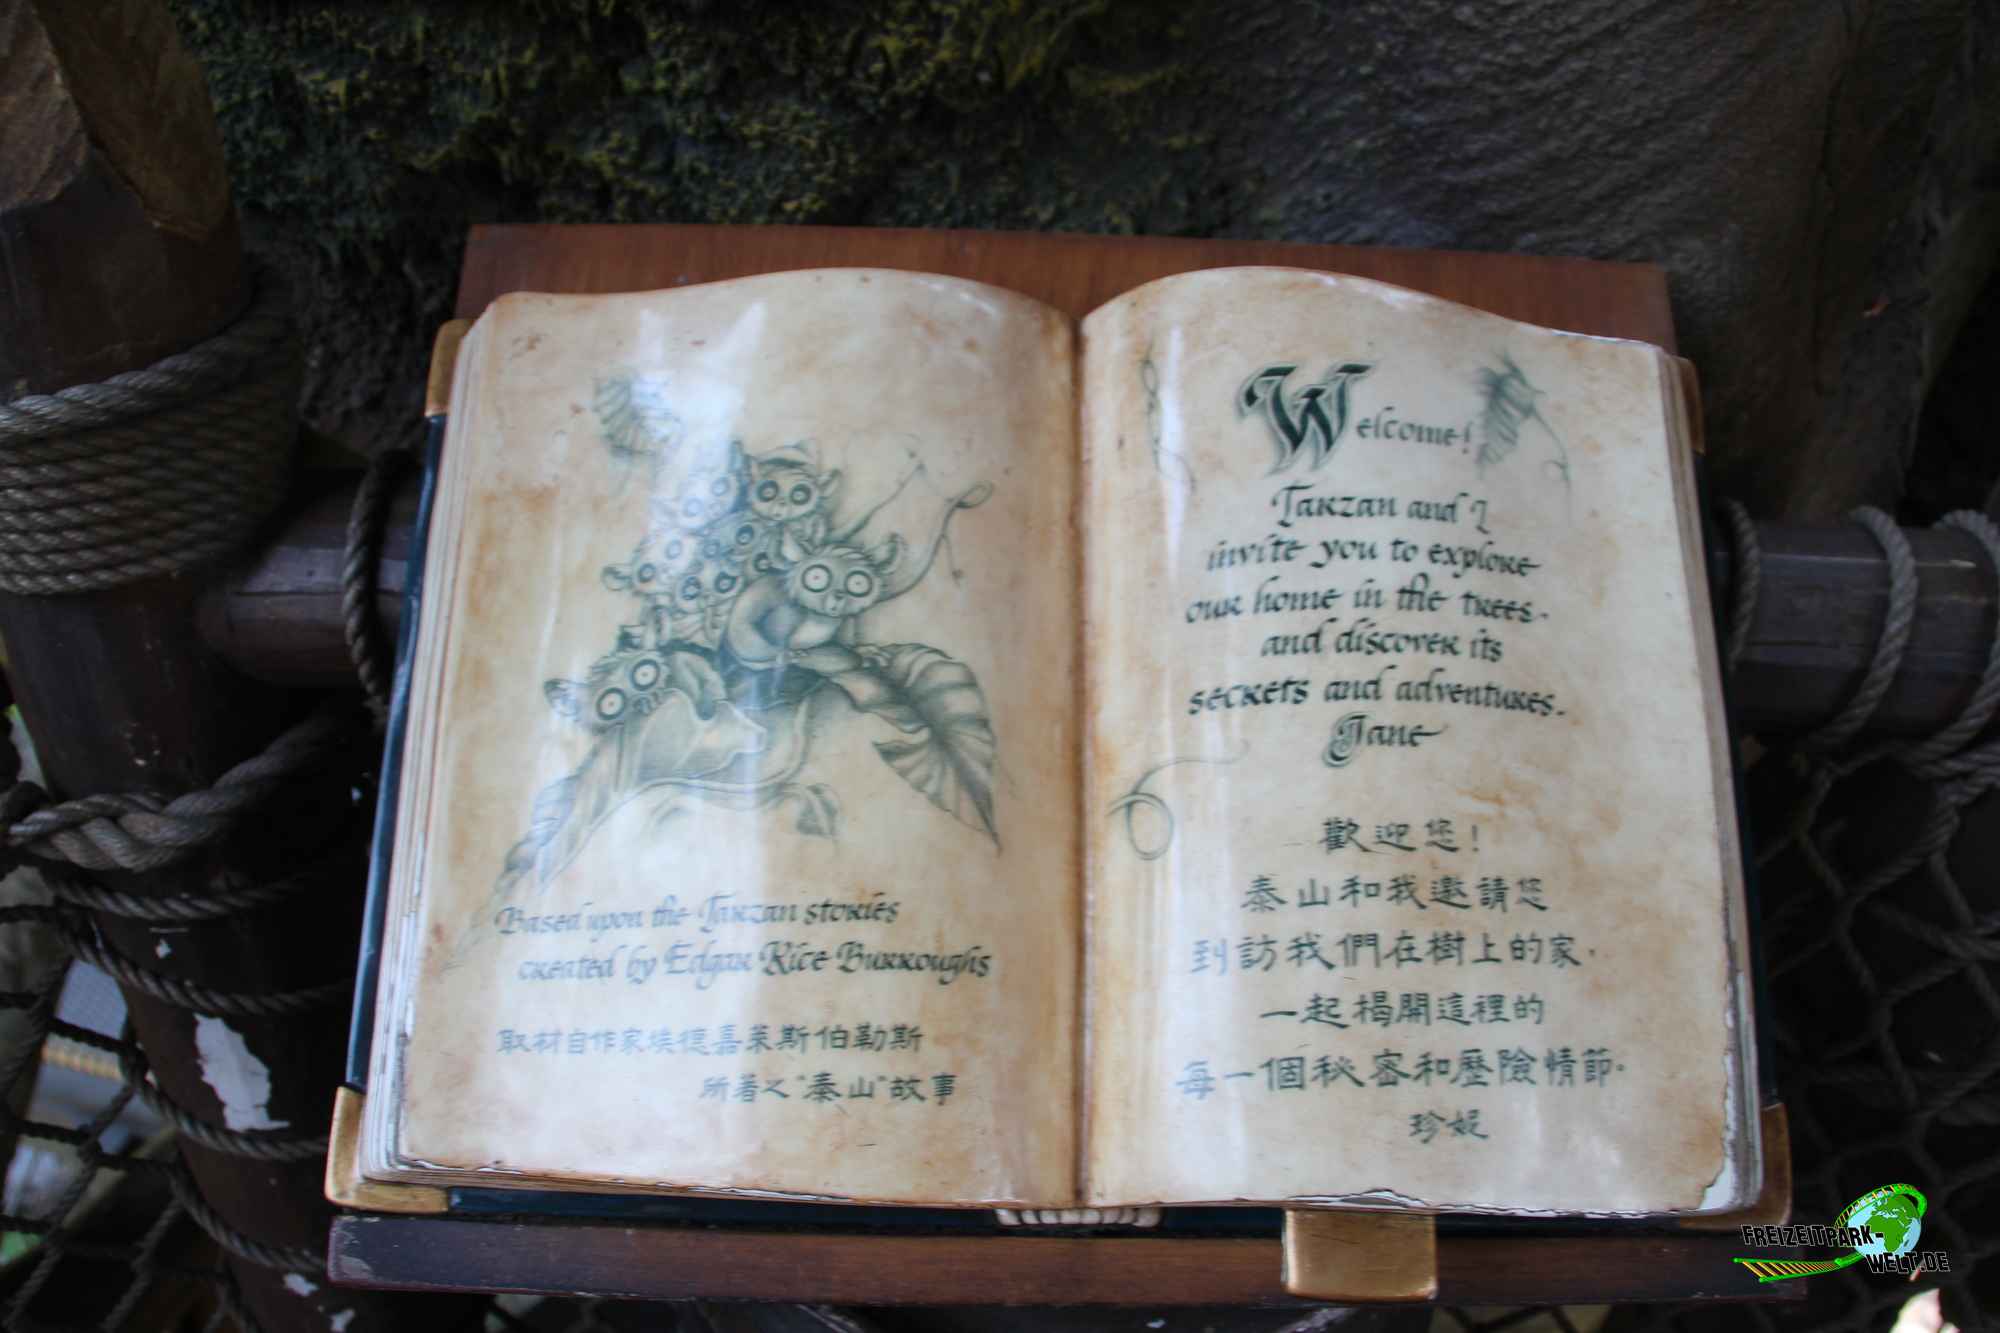 Based upon the Tarzan stories
created by Edgar Rice Burroughs
取材自作家埃德嘉萊斯伯勒斯
所著之"泰山"故事
Welcome!
Tarzan and I
invite you to explore
our home in the trees.
and discover its
secrets and adventures.
Jane
歡迎您!
泰山和我邀請您
到訪我們在樹上的家.
一起揭開這裡的
每一個秘密和歷險情節.
珍妮
FREIZEITPARK-
WELT.DE